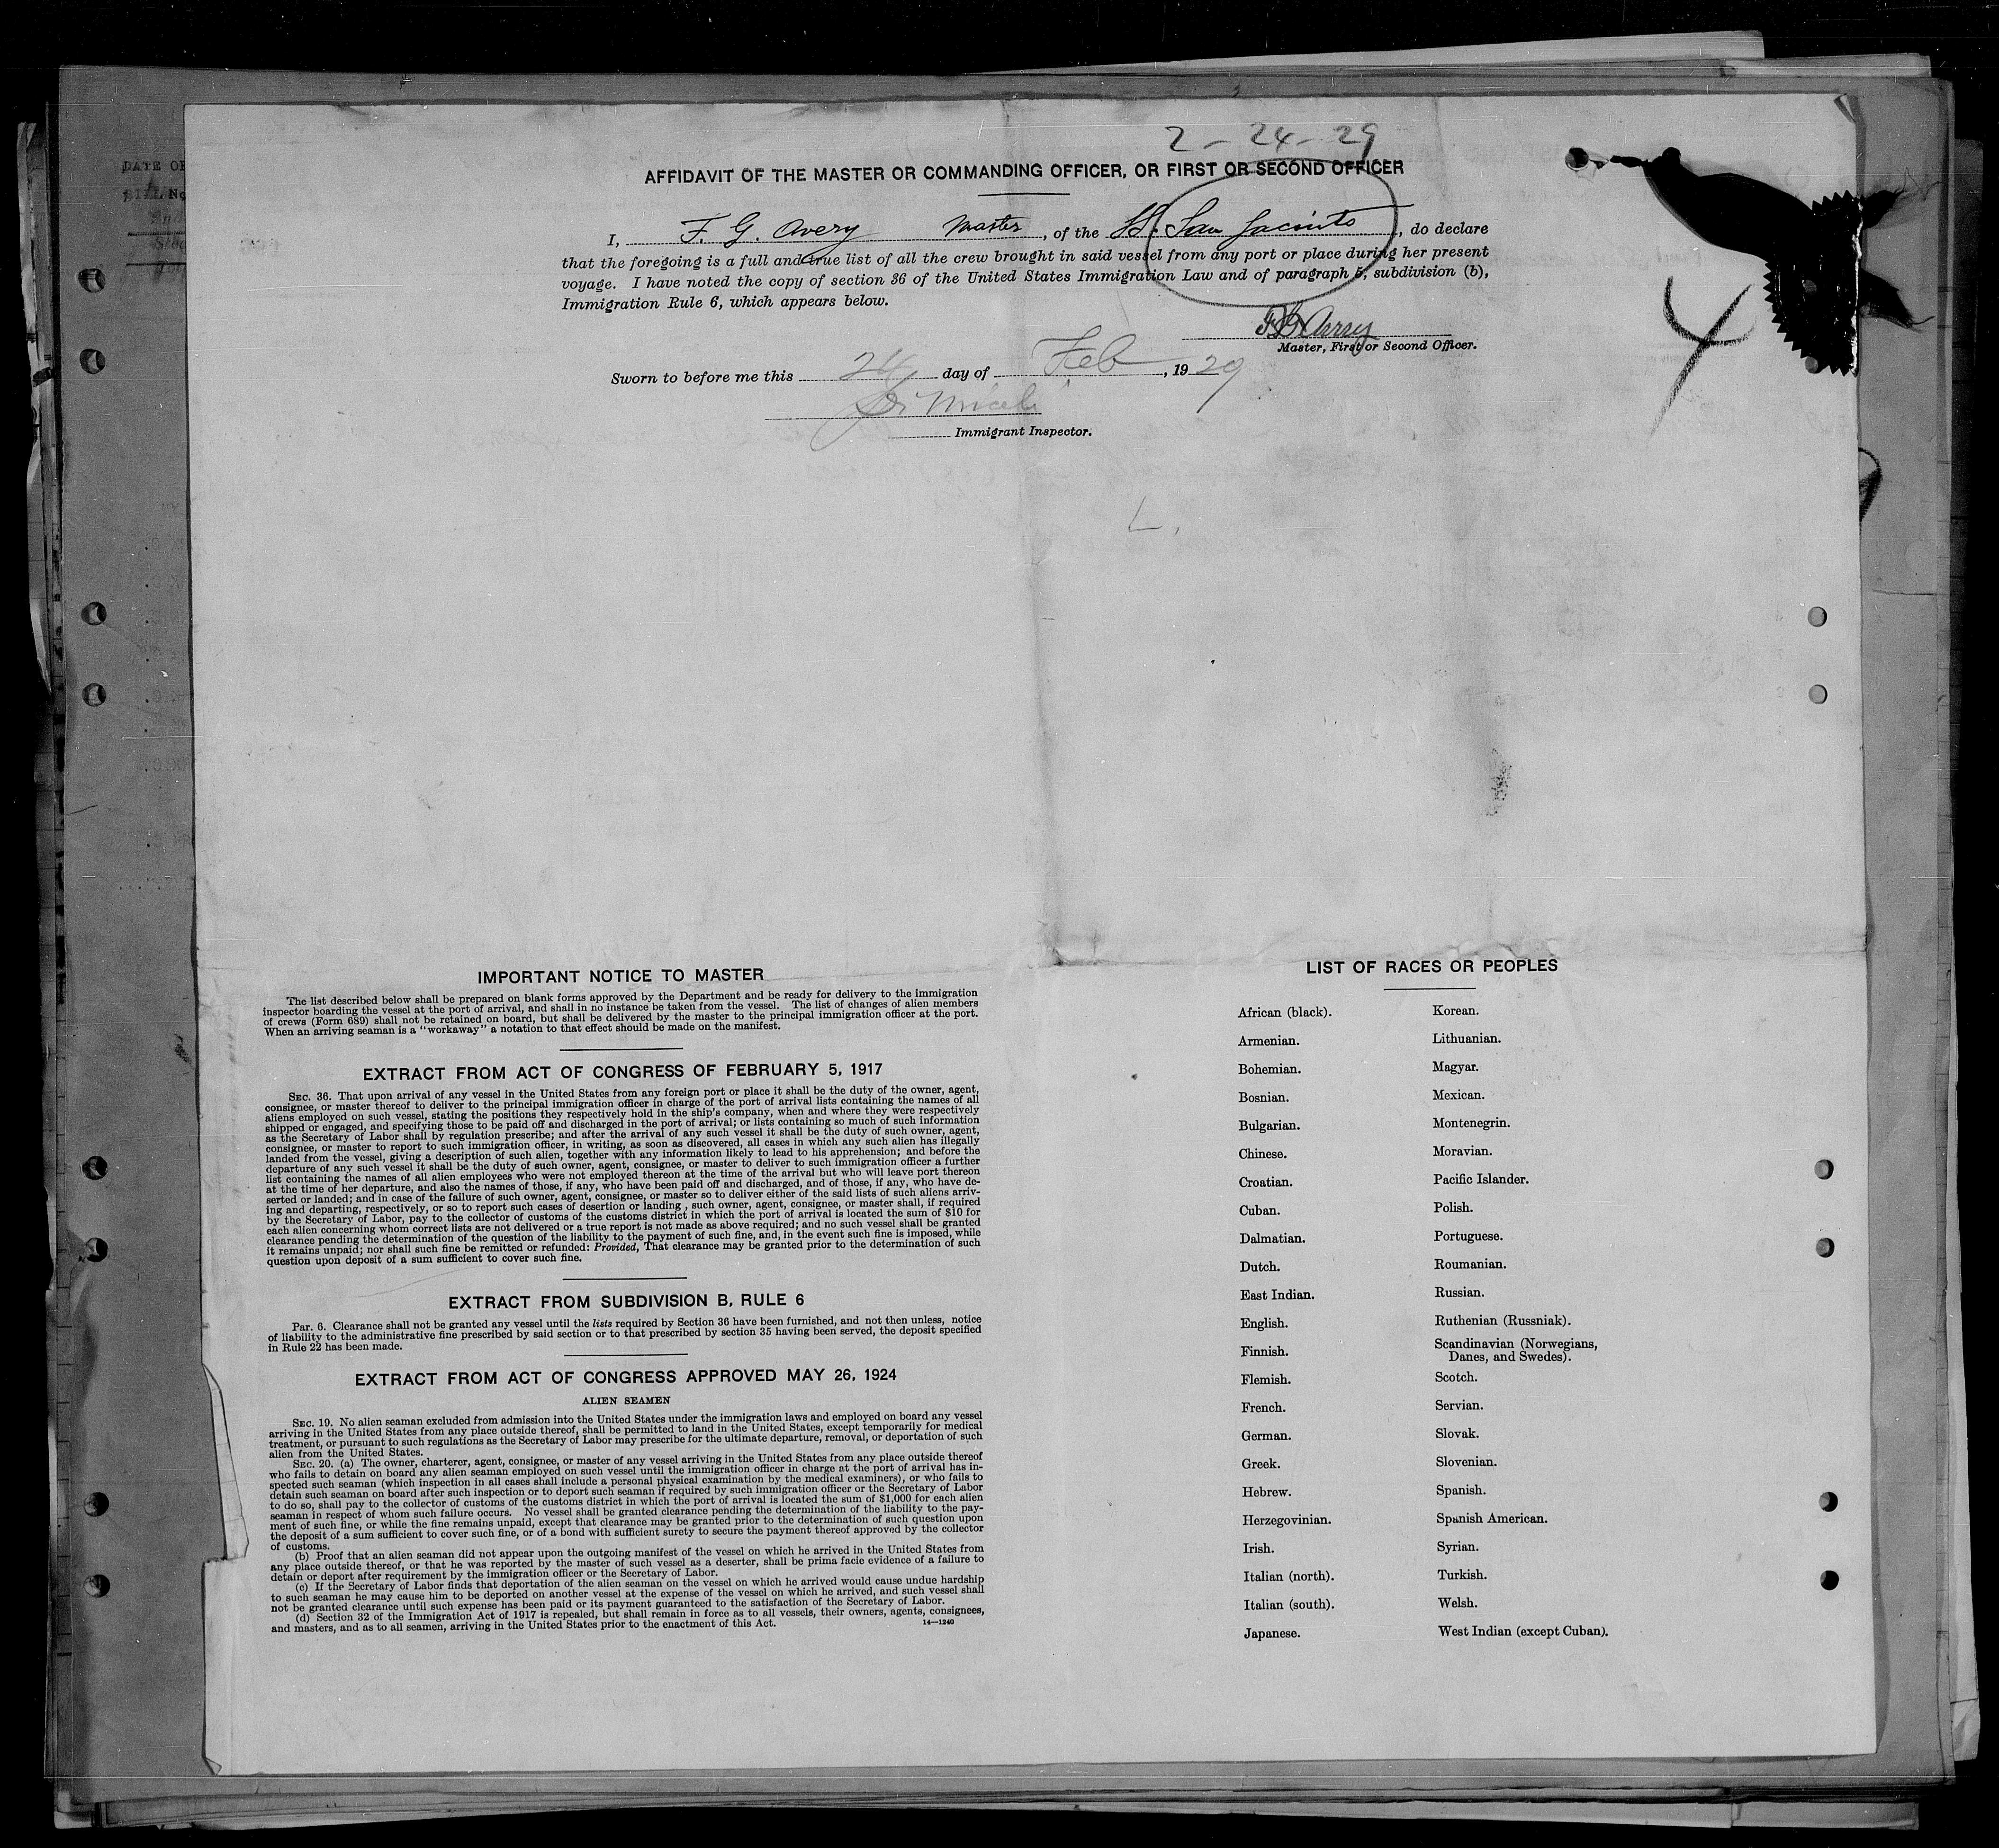 2-24-29
AFFIDAVIT OF THE MASTER OR COMMANDING OFFICER, OR FIRST OR SECOND OFFICER
I, F. G. Avery Master, of the SS. San Jacinto, do declare
that the foregoing is a full and true list of all the crew brought in said vessel from any port or place during her present
voyage. I have noted the copy of section 36 of the United States Immigration Law and of paragraph 5, subdivision (b),
Immigration Rule 6, which appears below.
F G Avery
Master, First or Second Officer.
Sworn to before me this 24 day of Feb, 1929
Immigrant Inspector.
4
L.
DATE OF
IMPORTANT NOTICE TO MASTER
The list described below shall be prepared on blank forms approved by the Department and be ready for delivery to the immigration
inspector boarding the vessel at the port of arrival, and shall in no instance be taken from the vessel. The list of changes of alien members
of crews (Form 689) shall not be retained on board, but shall be delivered by the master to the principal immigration officer at the port.
When an arriving seaman is a "workaway" a notation to that effect should be made on the manifest.
EXTRACT FROM ACT OF CONGRESS OF FEBRUARY 5, 1917
SEC. 36. That upon arrival of any vessel in the United States from any foreign port or place it shall be the duty of the owner, agent,
consignee, or master thereof to deliver to the principal immigration officer in charge of the port of arrival lists containing the names of all
aliens employed on such vessel, stating the positions they respectively hold in the ship's company, when and where they were respectively
shipped or engaged, and specifying those to be paid off and discharged in the port of arrival; or lists containing so much of such information
as the Secretary of Labor shall by regulation prescribe; and after the arrival of any such vessel it shall be the duty of such owner, agent,
consignee, or master to report to such immigration officer, in writing, as soon as discovered, all cases in which any such alien has illegally
landed from the vessel, giving a description of such alien, together with any information likely to lead to his apprehension; and before the
departure of any such vessel it shall be the duty of such owner, agent, consignee, or master to deliver to such immigration officer a further
list containing the names of all alien employees who were not employed thereon at the time of the arrival but who will leave port thereon
at the time of her departure, and also the names of those, if any, who have been paid off and discharged, and of those, if any, who have de-
serted or landed; and in case of the failure of such owner, agent, consignee, or master so to deliver either of the said lists of such aliens arriv-
ing and departing, respectively, or so to report such cases of desertion or landing , such owner, agent, consignee, or master shall, if required
by the Secretary of Labor, pay to the collector of customs of the customs district in which the port of arrival is located the sum of $10 for
each alien concerning whom correct lists are not delivered or a true report is not made as above required; and no such vessel shall be granted
clearance pending the determination of the question of the liability to the payment of such fine, and, in the event such fine is imposed, while
it remains unpaid; nor shall such fine be remitted or refunded: Provided, That clearance may be granted prior to the determination of such
question upon deposit of a sum sufficient to cover such fine.
EXTRACT FROM SUBDIVISION B, RULE 6
Par. 6. Clearance shall not be granted any vessel until the lists required by Section 36 have been furnished, and not then unless, notice
of liability to the administrative fine prescribed by said section or to that prescribed by section 35 having been served, the deposit specified
in Rule 22 has been made.
EXTRACT FROM ACT OF CONGRESS APPROVED MAY 26, 1924
ALIEN SEAMEN
SEC. 19. No alien seaman excluded from admission into the United States under the immigration laws and employed on board any vessel
arriving in the United States from any place outside thereof, shall be permitted to land in the United States, except temporarily for medical
treatment, or pursuant to such regulations as the Secretary of Labor may prescribe for the ultimate departure, removal, or deportation of such
alien from the United States.
SEC. 20. (a) The owner, charterer, agent, consignee, or master of any vessel arriving in the United States from any place outside thereof
who fails to detain on board any alien seaman employed on such vessel until the immigration officer in charge at the port of arrival has in-
spected such seaman (which inspection in all cases shall include a personal physical examination by the medical examiners), or who fails to
detain such seaman on board after such inspection or to deport such seaman if required by such immigration officer or the Secretary of Labor
to do so, shall pay to the collector of customs of the customs district in which the port of arrival is located the sum of $1,000 for each alien
seaman in respect of whom such failure occurs. No vessel shall be granted clearance pending the determination of the liability to the pay-
ment of such fine, or while the fine remains unpaid, except that clearance may be granted prior to the determination of such question upon
the deposit of a sum sufficient to cover such fine, or of a bond with sufficient surety to secure the payment thereof approved by the collector
of customs.
(b) Proof that an alien seaman did not appear upon the outgoing manifest of the vessel on which he arrived in the United States from
any place outside thereof, or that he was reported by the master of such vessel as a deserter, shall be prima facie evidence of a failure to
detain or deport after requirement by the immigration officer or the Secretary of Labor.
(c) If the Secretary of Labor finds that deportation of the alien seaman on the vessel on which he arrived would cause undue hardship
to such seaman he may cause him to be deported on another vessel at the expense of the vessel on which he arrived, and such vessel shall
not be granted clearance until such expense has been paid or its payment guaranteed to the satisfaction of the Secretary of Labor.
(d) Section 32 of the Immigration Act of 1917 is repealed, but shall remain in force as to all vessels, their owners, agents, consignees,
and masters, and as to all seamen, arriving in the United States prior to the enactment of this Act.
14—1240
LIST OF RACES OR PEOPLES
African (black).
Armenian.
Bohemian.
Bosnian.
Bulgarian.
Chinese.
Croatian.
Cuban.
Dalmatian.
Dutch.
East Indian.
English.
Finnish.
Flemish.
French.
German.
Greek.
Hebrew.
Herzegovinian.
Irish.
Italian (north).
Italian (south).
Japanese.
Korean.
Lithuanian.
Magyar.
Mexican.
Montenegrin.
Moravian.
Pacific Islander.
Polish.
Portuguese.
Roumanian.
Russian.
Ruthenian (Russniak).
Scandinavian (Norwegians,
Danes, and Swedes).
Scotch.
Servian.
Slovak.
Slovenian.
Spanish.
Spanish American.
Syrian.
Turkish.
Welsh.
West Indian (except Cuban).